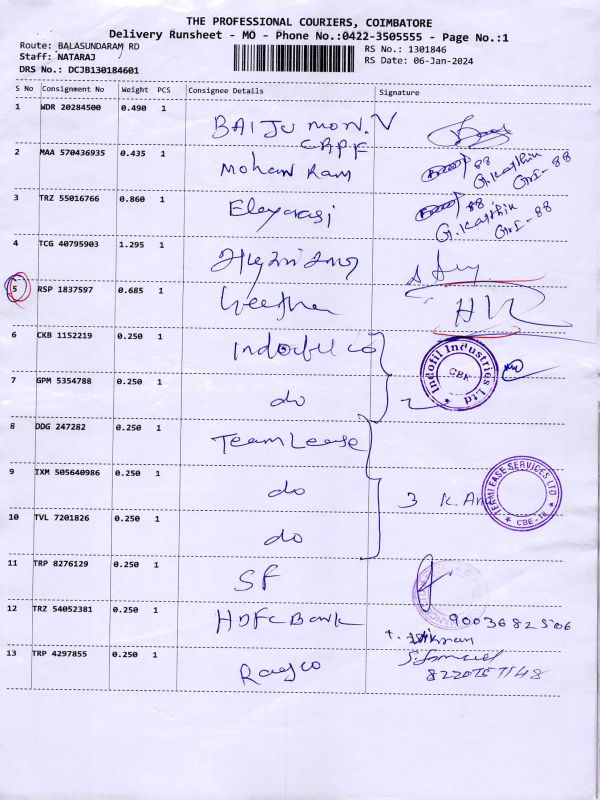 THE PROFESSIONAL COURIERS, COIMBATORE
Delivery Runsheet - MO - Phone No.:0422-3505555 - Page No.:1
Route: BALASUNDARAM RD
RS No.: 1301846
Staff: NATARAJ
RS Date: 06-Jan-2024
DRS No.: DCJB130184601
S No Consignment No Weight PCS Consignee Details Signature
1 WDR 20284500 0.490 1 BAIJU MON.V
CRPF
2 MAA 570436935 0.435 1 Mohan Ram 88
G.Karthik GrI-88
3 TRZ 55016766 0.860 1 Elayarasi 88
G.Karthik GrI-88
4 TCG 40795903 1.295 1
5 RSP 1837597 0.685 1
6 CKB 1152219 0.250 1 Indofil co Indofil Industries Ltd CBE
7 GPM 5354788 0.250 1 do
8 DDG 247282 0.250 1 TeamLease
9 IXM 505640986 0.250 1 do 3 TEAMLEASE SERVICES LTD
10 TVL 7201826 0.250 1 do CBE-18
11 TRP 8276129 0.250 1 SF
12 TRZ 54052381 0.250 1 HDFC Bank 9003682506
13 TRP 4297855 0.250 1